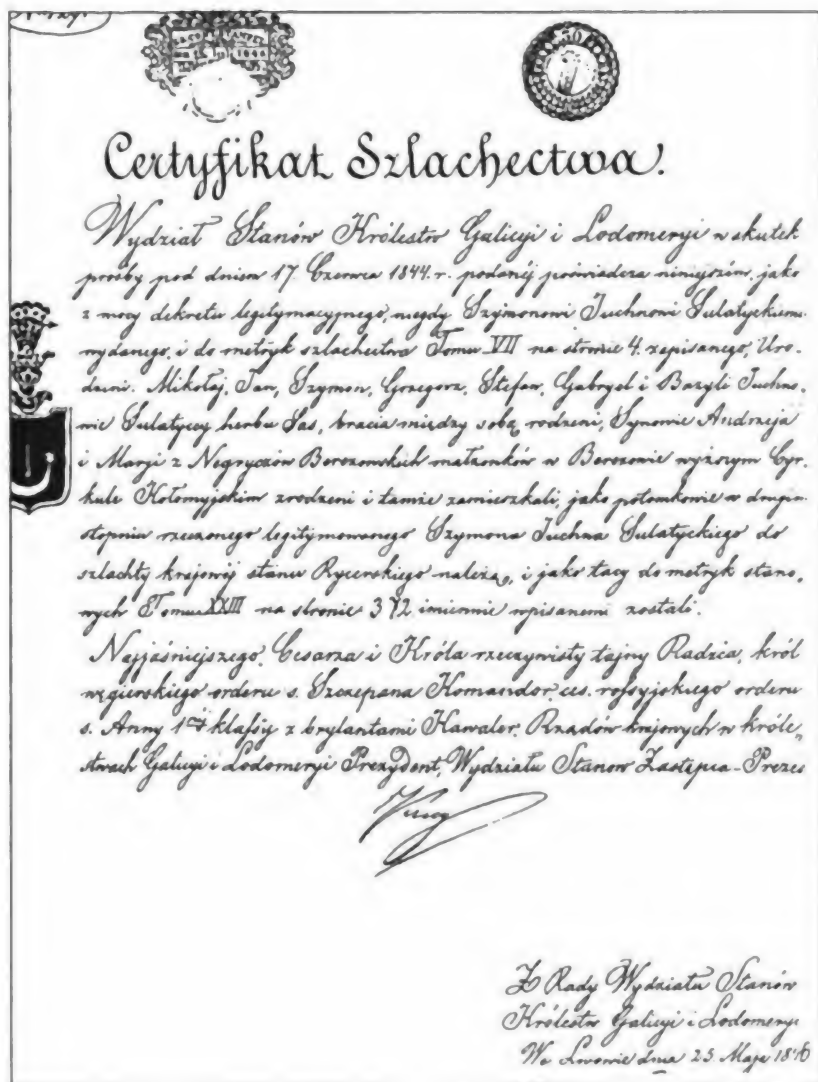 Certyfikat Szlachectwa.
Wydział Stanów Królestw Galicyi i Lodomeryi w skutek
prośby pod dniem 17. Czerwca 1844. r. podanéj poświadcza niniejszém, jako
z mocy dekretu legitymacyjnego, niegdy Szymonowi Juchnowi Sulatyckiemu
wydanego, i do metryk szlachectwa Tomu VII na stronie 4. zapisanego, Uro-
dzeni. Mikołaj, Jan, Szymon, Grzegorz, Stefan, Gabryel i Bazyli Juchno-
wie Sulatyccy herbu Sas, bracia między sobą rodzeni, Synowie Andrzeja
i Marji z Negryczów Berezowskich małżonków w Berezowie wyższym Cyr-
kule Kołomyjskim zrodzeni i tamże zamieszkali, jako potomkowie w drugim
stopniu rzeczonego legitymowanego Szymona Juchna Sulatyckiego do
szlachty krajowéj stanu Rycerskiego należą, i jako tacy do metryk stano-
wych Tomu XXIII na stronie 372 imiennie wpisanemi zostali.
Najjaśniejszego Cesarza i Króla rzeczywisty tajny Radzca, król
węgierskiego orderu s. Szczepana Komandor, ces. rossyjskiego orderu
s. Anny 1éj klassy z brylantami Kawaler, Rządów krajowych w króle-
stwach Galicyi i Lodomeryi Prezydent, Wydziału Stanów Zastępca-Prezes
Z Rady Wydziału Stanów
Królestw Galicyi i Lodomeryi
We Lwowie dnia 25 Maja